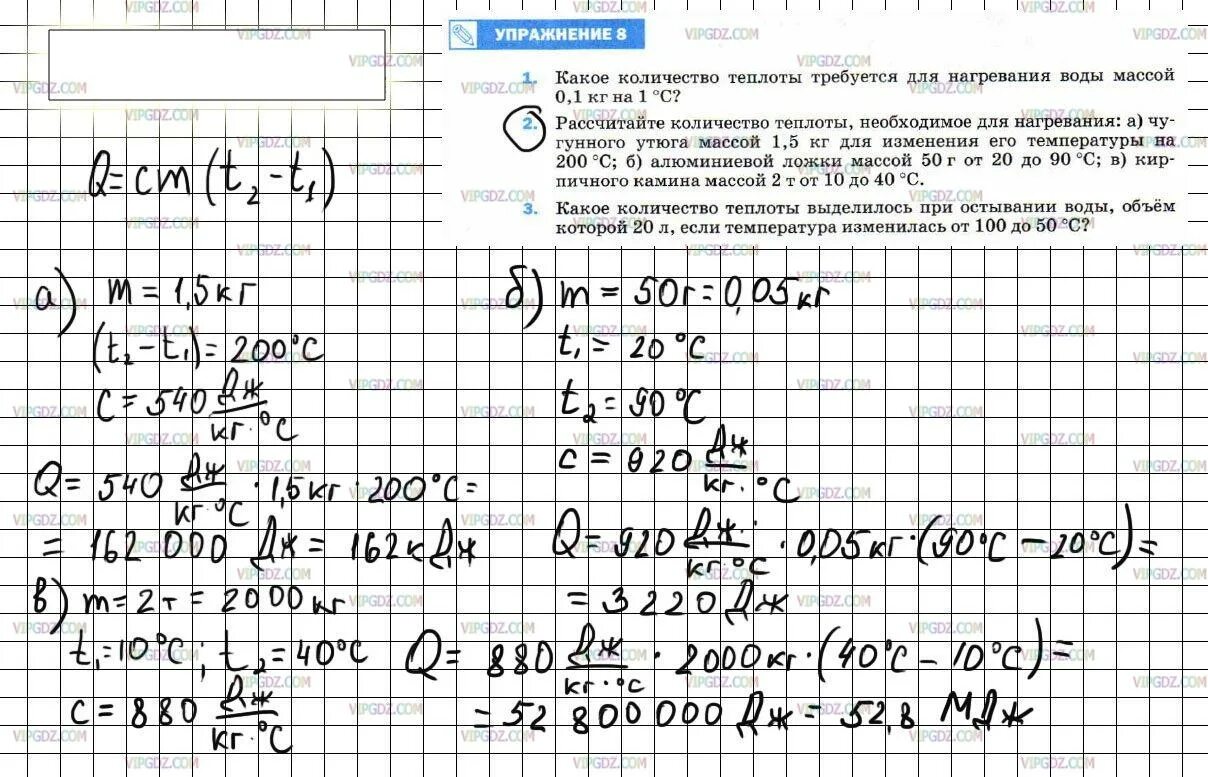 УПРАЖНЕНИЕ 8
1. Какое количество теплоты требуется для нагревания воды массой
0,1 кг на 1 °С?
2. Рассчитайте количество теплоты, необходимое для нагревания: а) чу-
гунного утюга массой 1,5 кг для изменения его температуры на
200 °С; б) алюминиевой ложки массой 50 г от 20 до 90 °С; в) кир-
пичного камина массой 2 т от 10 до 40 °С.
3. Какое количество теплоты выделилось при остывании воды, объём
которой 20 л, если температура изменилась от 100 до 50 °С?
Q = cm (t₂ - t₁)
а) m = 1,5 кг
(t₂ - t₁) = 200°C
c = 540 Дж/кг·°C
Q = 540 Дж/кг·°C · 1,5 кг · 200°C =
= 162 000 Дж = 162 кДж
б) m = 50г = 0,05 кг
t₁ = 20 °C
t₂ = 90°C
c = 920 Дж/кг·°C
Q = 920 Дж/кг·°C · 0,05 кг · (90°C - 20°C) =
= 3220 Дж
в) m = 2 т = 2000 кг
t₁ = 10°C ; t₂ = 40°C
c = 880 Дж/кг·°C
Q = 880 Дж/кг·°C · 2000 кг · (40°C - 10°C) =
= 52 800 000 Дж = 52,8 МДж
VIPGDZ.COM